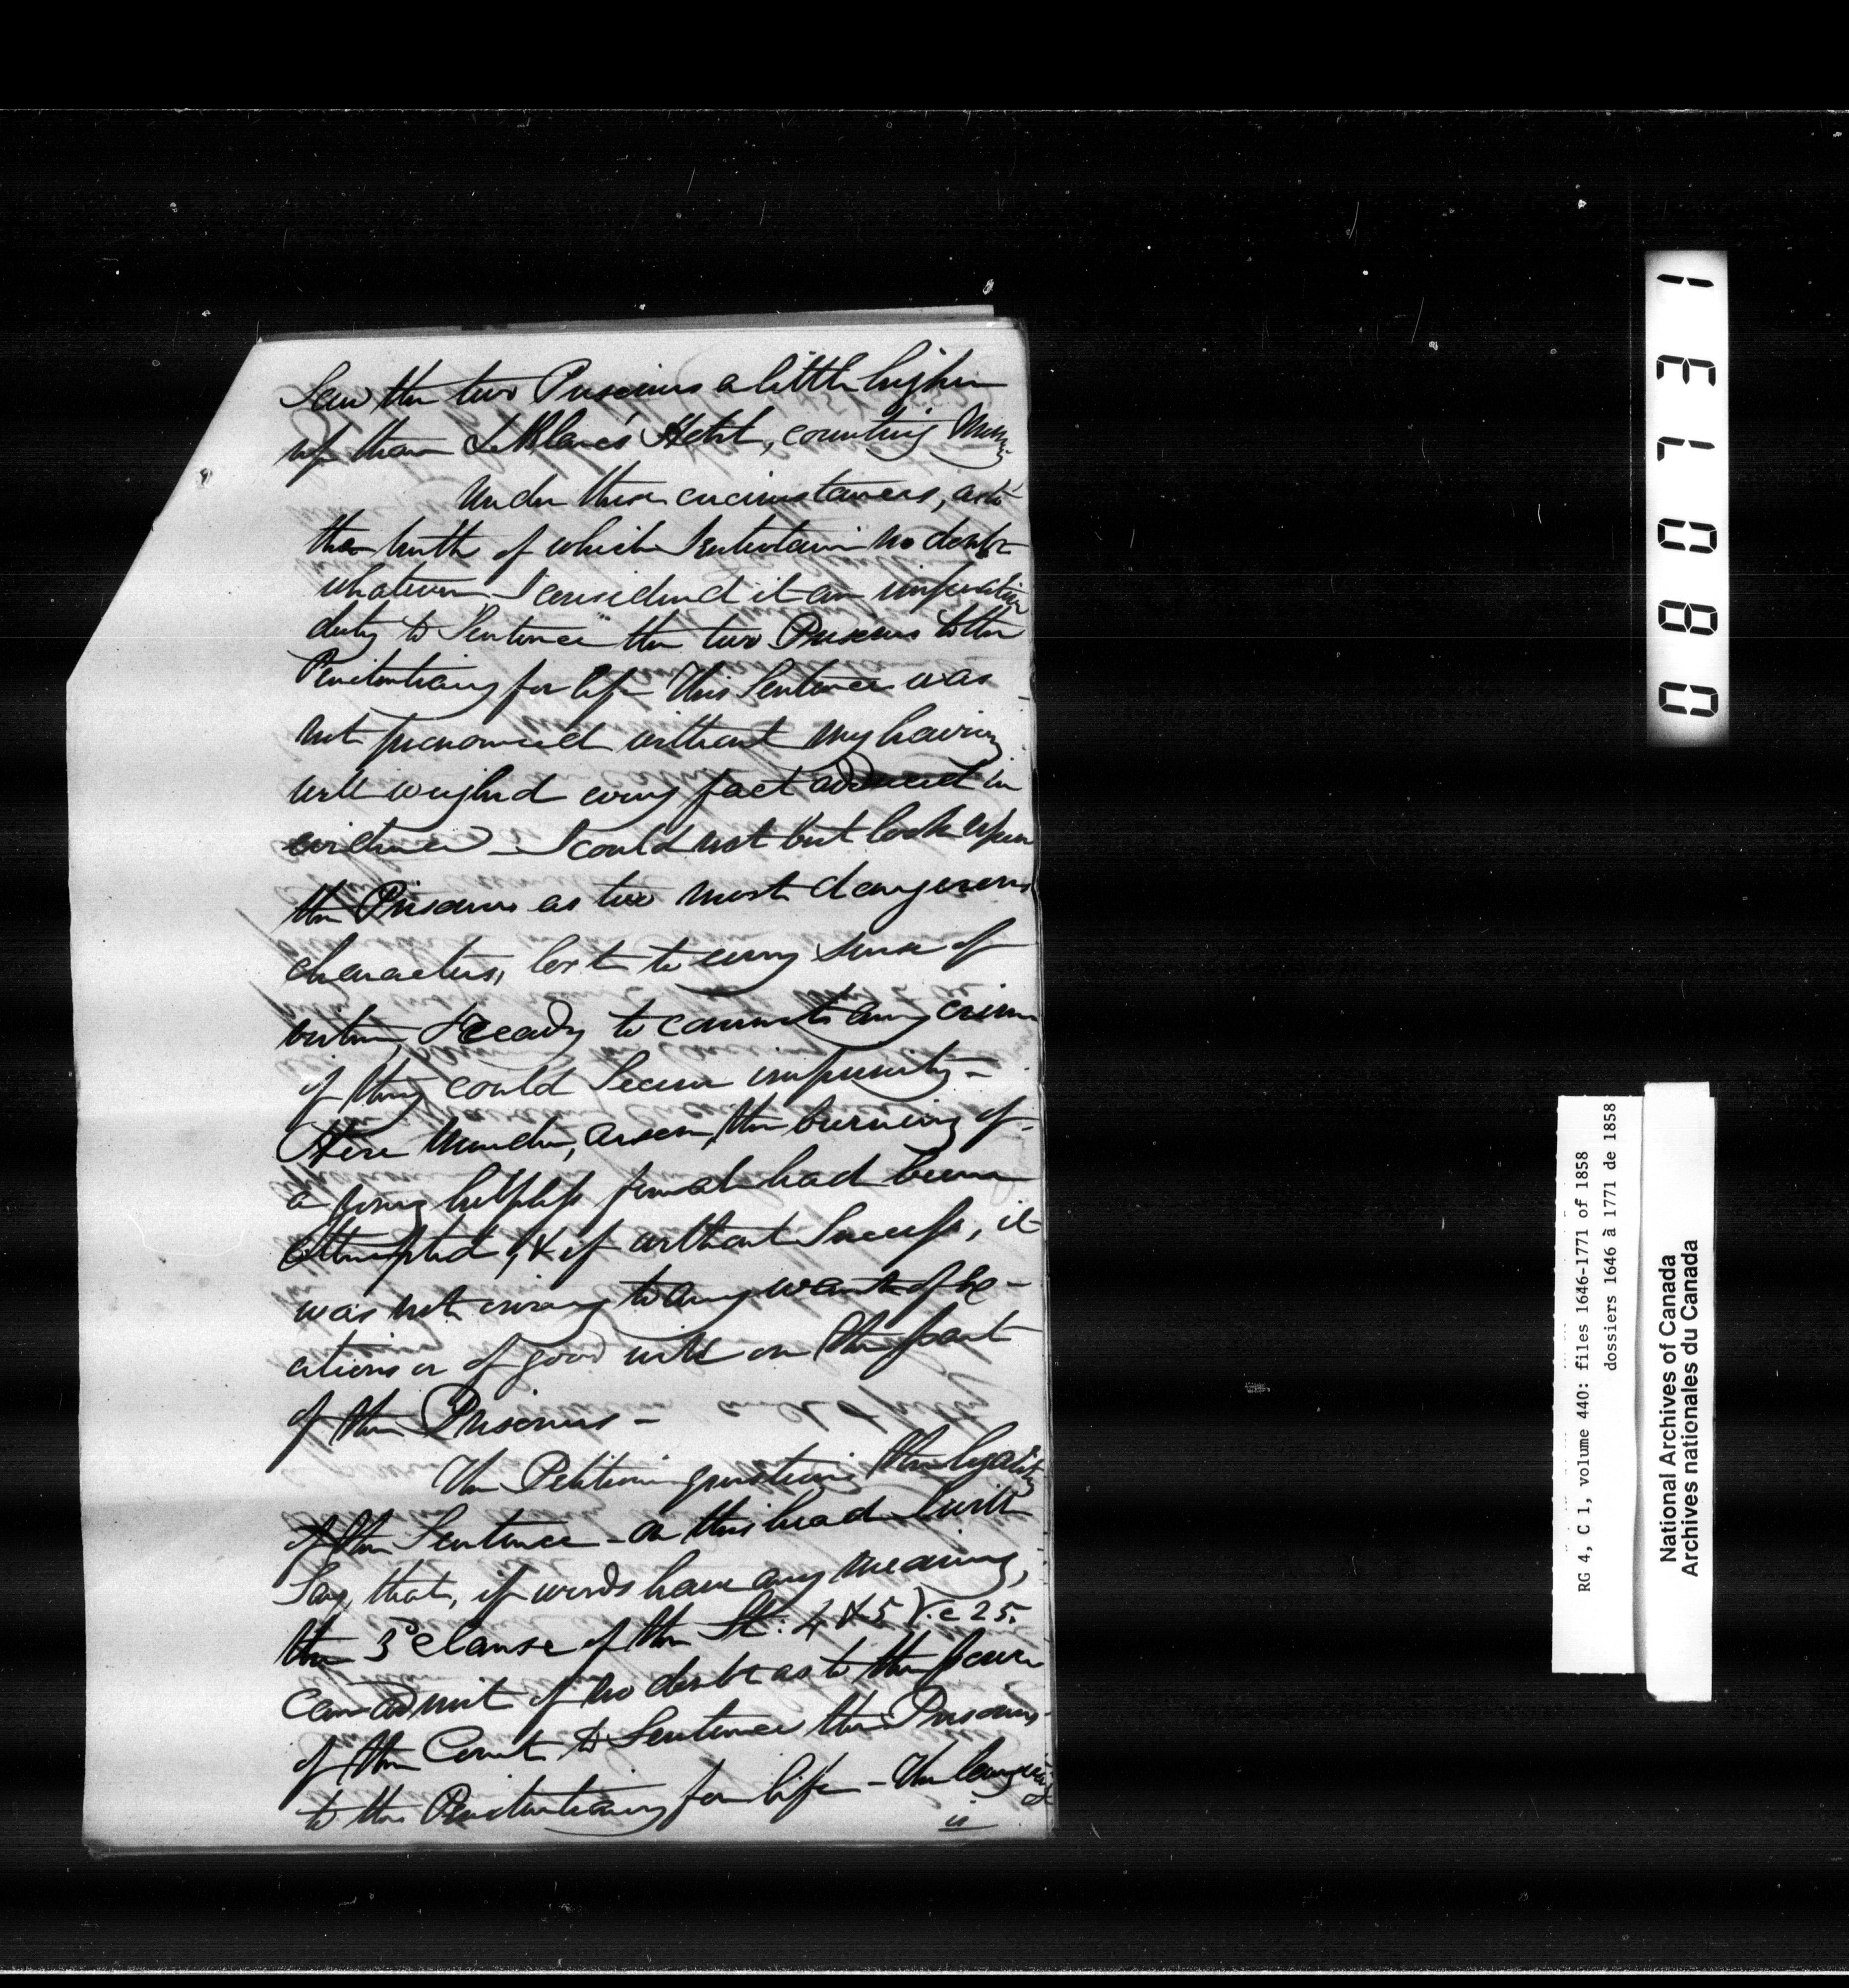 Saw the two Prisoners a little higher
up than LeBlanc's Hotel, counting Money
Under these circumstances, as to
the truth of which I entertain no doubt
whatever I considered it an imperative
duty to Sentence the two Prisoners to the
Penitentiary for life This Sentence was
not pronounced without my having
well weighed every fact adduced in
evidence - I could not but look upon
the Prisoners as two most dangerous
characters, lost to every sense of
virtue, & ready to commit any crime
if they could Secure impunity -
Here Murder, arson, the burning of
a young helpless female had been
attempted, & if without Success, it
was not owing to any want of
or of good will on the part
of the Prisoners -
The Petition questions the legality
of the Sentence - on this head I will
Say, that, if words have any meaning,
the 3º clause of the St: 4 & 5 V. c 25.
can admit of no doubt as to the power
of the Court to Sentence the Prisoners
to the Penitentiary for life - The language
is
0 8 0 7 3 1
RG 4, C 1, volume 440: files 1646-1771 of 1858
dossiers 1646 à 1771 de 1858
National Archives of Canada
Archives nationales du Canada